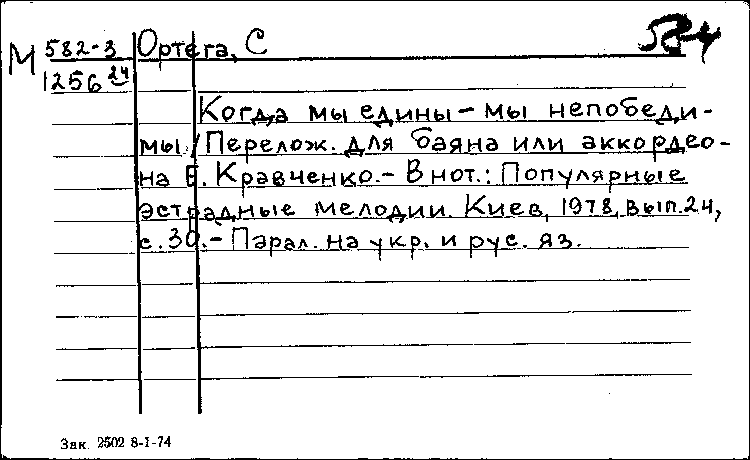 М 582-3 Ортега, С
1256 24
Когда мы едины - мы непобеди-
мы / Перелож. для баяна или аккордео-
на Е. Кравченко. - В нот.: Популярные
эстрадные мелодии. Киев, 1978, вып. 24,
с. 30. - Парал. на укр. и рус. яз.
Зак. 2502 8-I-74